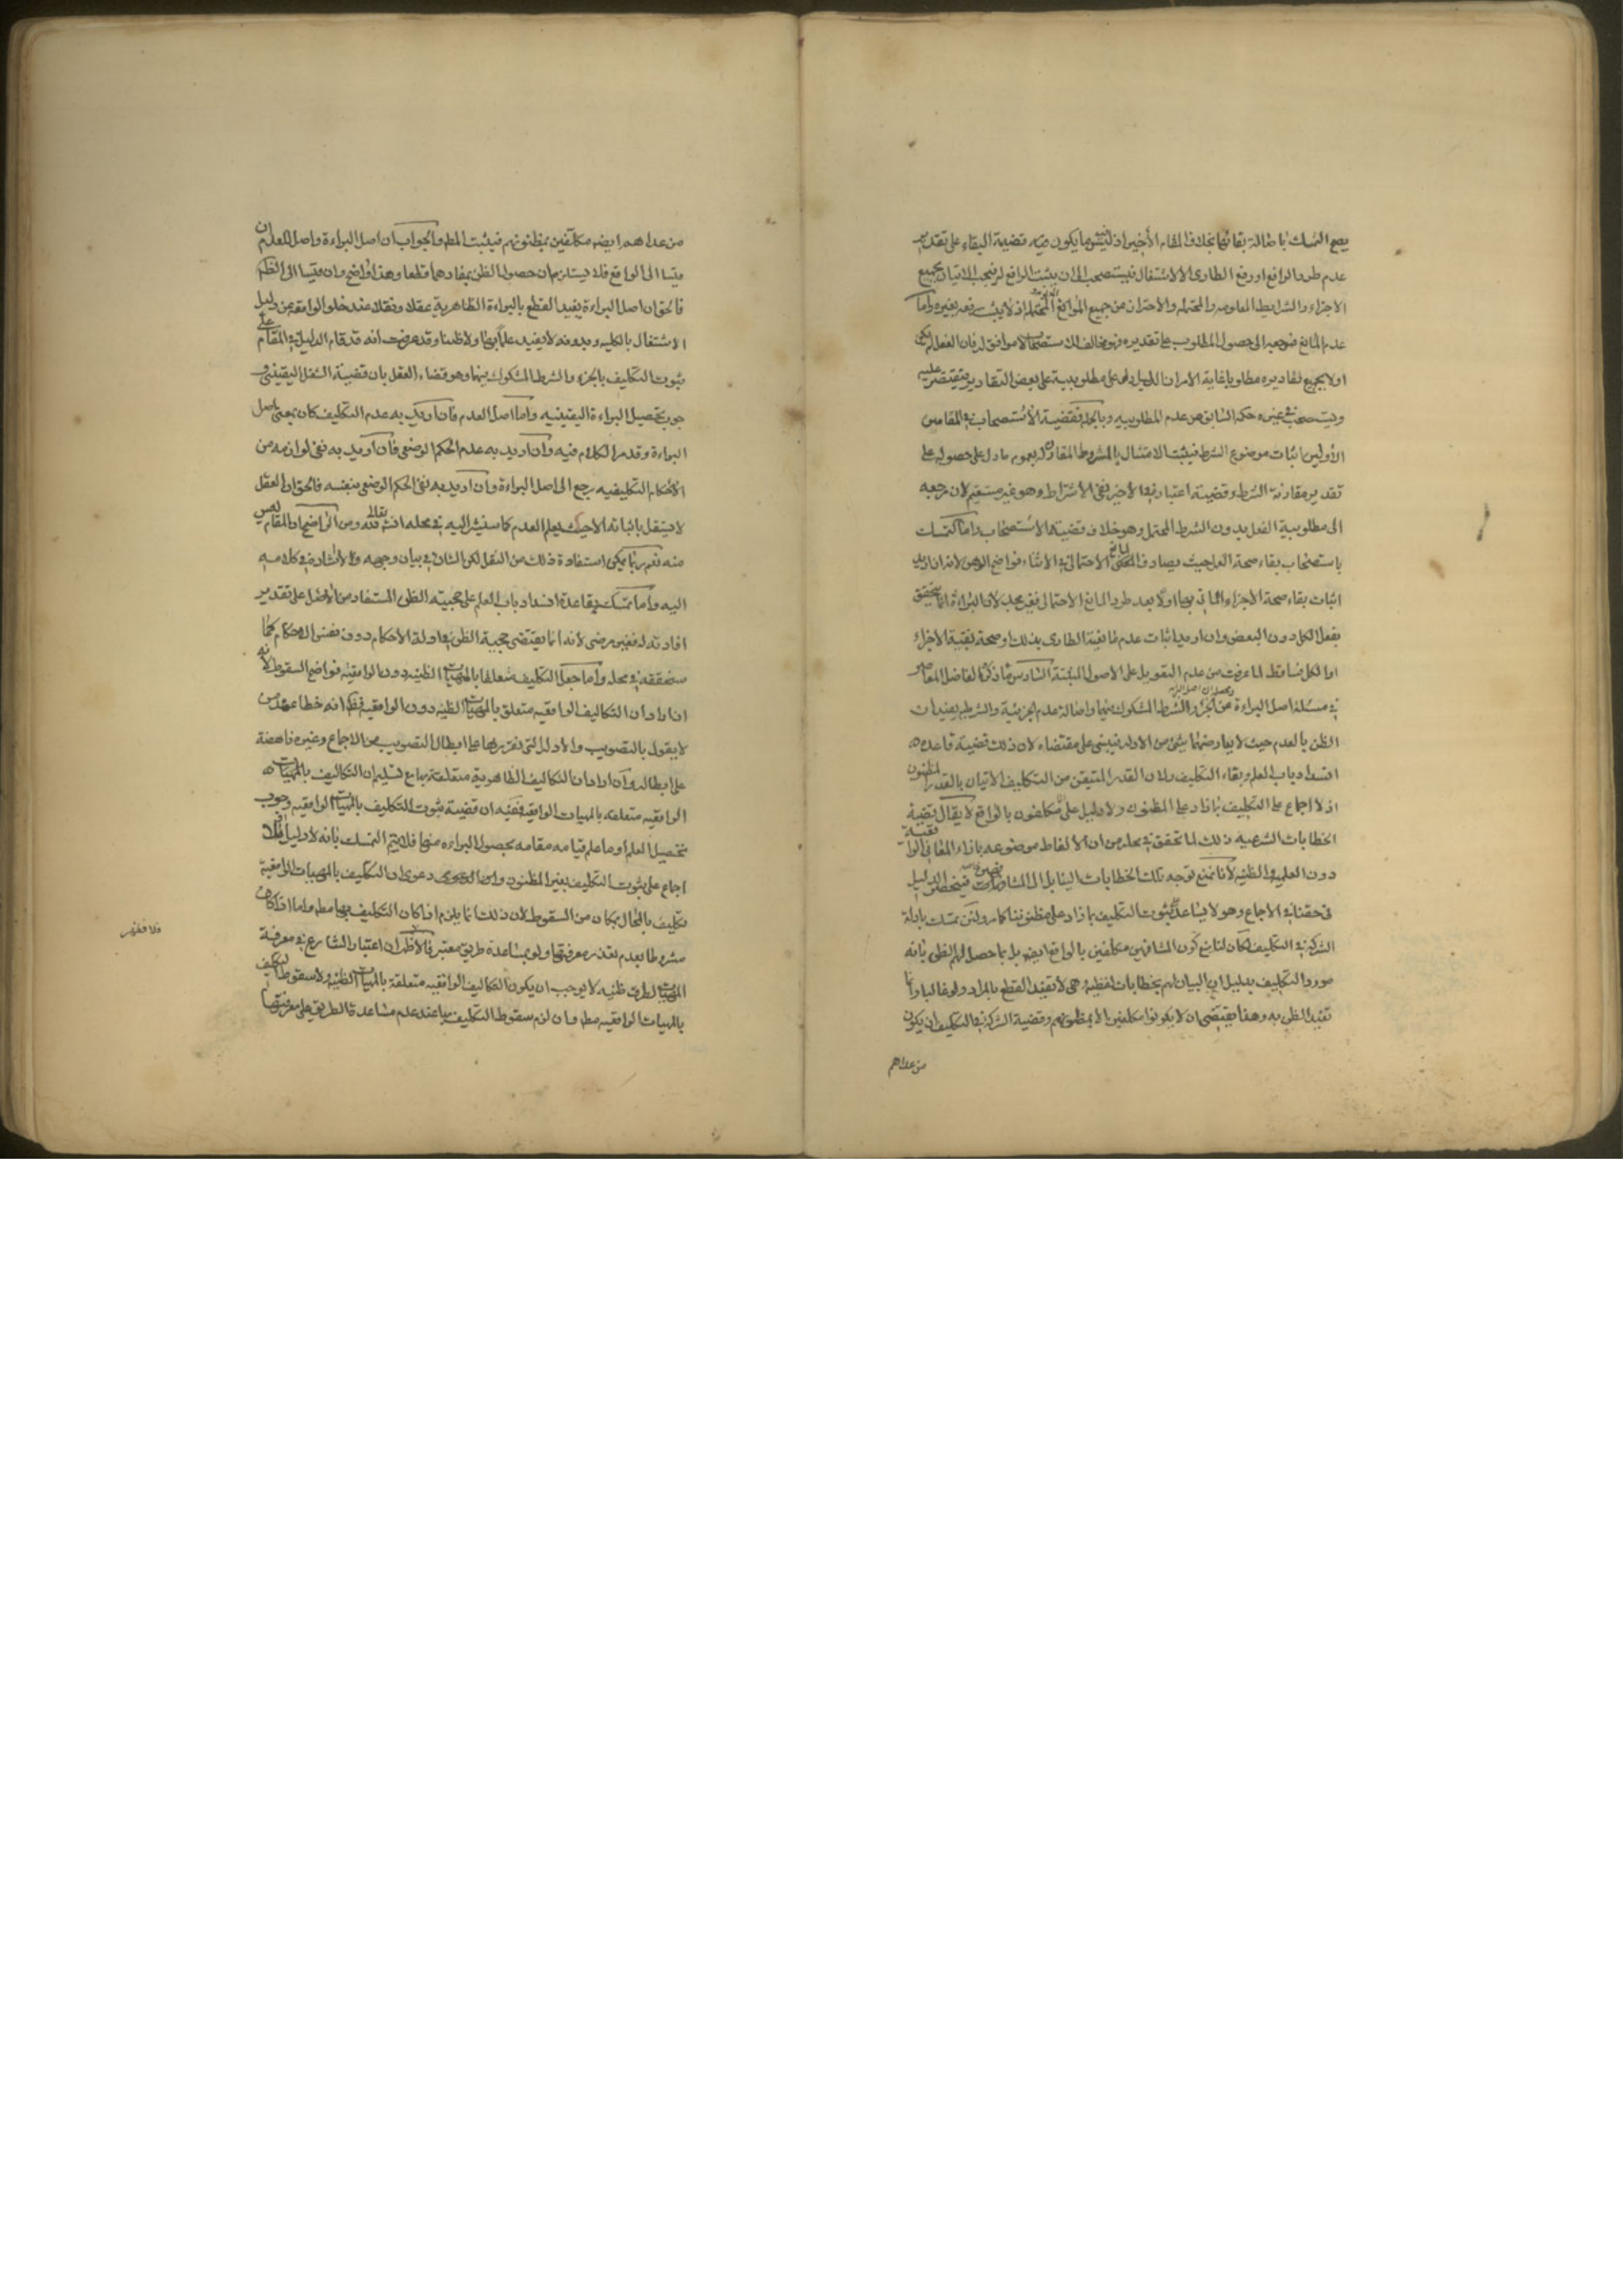 يصح التمسك باصالة بقائها بخلاف المقام الأخير اذ ليس ما يكون فيه قضية البقاء على تقدير
عدم طرو الرافع او رفع الطارى الا الاشتغال فيستصحب الى ان يثبت الرافع له فيجب الاتيان بجميع
الاجزاء والشرايط المعلومه والمحتمله والاحتراز من جميع الموانع المحتمله اذ لا يثبت رفعه بغيره واما
عدم المانع فمرجعه الى حصول المطلوب على تقديره ونوع المستصحاب لا موافق له فان الفعل لم يكن
اولا بجميع تقاديره مطلوبا غاية الامر ان الدليل دل على مطلوبيته على بعض التقادير فيقتصر عليه
ويستصحب في غيره حكمه السابق من عدم المطلوبيه وبالجمله فقضية الاستصحاب في المقامين
الأولين اثبات موضوع الشرط فيثبت الامتثال بالمشروط المقارن له بعموم ما دل على حصوله على
تقدير مقارنة الشرط وقضية اعتباره في الاخير نفى الاشتراط وهو غير مستقيم لان مرجعه
الى مطلوبية الفعل بدون الشرط المحتمل وهو خلاف قضية الاستصحاب واما التمسك
باستصحاب بقاء صحة العمل حيث يصادف المانع الاحتمالى في الاثناء فواضح الوهن لانه ان اريد
اثبات بقاء صحة الاجزاء الماتى بها اولا بعد طرو المانع الاحتمالى فغير مجد لان البراءة انما تتحقق
بفعل الكل دون البعض وان اريد اثبات عدم مانعية الطارى بذلك او صحة بقية الاجزاء
او الكل فساقط لما عرفت من عدم التعويل على الاصول المثبتة السادس ما ذكره الفاضل المعاصر
في مسئلة اصل البراءة ومحصله ان اصل البراءة عن الجزء والشرط المشكوك فيهما واصالة عدم الجزئية والشرطيه يفيدان
الظن بالعدم حيث لا يعارضهما شئ من الادله فيبنى على مقتضاه لان ذلك قضية قاعدة
انسداد باب العلم وبقاء التكليف ولان القدر المتيقن من التكليف الاتيان بالقدر المظنون
اذ لا اجماع على التكليف بما زاد على المظنون ولا دليل على انا مكلفون بالواقع لا يقال قضية
الخطابات الشرعيه ذلك لما تحقق في محله من ان الالفاظ موضوعه بازاء المعانى الواقعية
دون العلميه والظنيه لأنا نمنع توجه تلك الخطابات الينا بل الى المشافهين خاصة فينحصر الدليل
في حقنا في الاجماع وهو لا يساعد على ثبوت التكليف بما زاد على مظنوننا كما مر ولئن تمسك بادلة
الشركة في التكليف لكان لنا منع كون المشافهين مكلفين بالواقع ايضا بل بما حصل لهم الظن بانه
مورد التكليف بدليل ان البيان لهم بخطابات لفظيه وهى لا تفيد القطع بالمراد ولو غالبا وانما
تفيد الظن به وهذا يقتضى ان لا يكونوا مكلفين الا بمظنونهم وقضية الشركة في التكليف ان يكون
من عداهم
من عداهم ايضا مكلفين بمظنونهم فيثبت المط والجواب ان اصل البراءة واصل العدم ان
قيسا الى الواقع فلا يستلزمان حصول الظن بمفادهما قطعا وهذا واضح وان قيسا الى الظاهر
فالحق ان اصل البراءة يفيد القطع بالبراءة الظاهرية عقلا ونقلا عند خلو الواقعة من دليل
الاشتغال بالكليه وبدونه لا يفيد علما بها ولا ظنا وقد عرفت انه قد قام الدليل في المقام على
ثبوت التكليف بالجزء والشرط المشكوك فيهما وهو قضاء العقل بان قضية الشغل اليقينى و
جوب تحصيل البراءة اليقينيه واما اصل العدم فان اريد به عدم التكليف كان بمعنى اصل
البراءة وقد مر الكلام فيه وان اريد به عدم الحكم الوضعى فان اريد به نفى لوازمه من
الاحكام التكليفيه رجع الى اصل البراءة وان اريد به نفى الحكم الوضعى بنفسه فالحق ان العقل
لا يستقل باثباته الا حيث يعلم العدم كما سنشير اليه في محله انشاء الله تعالى ومن الواضح ان المقام ليس
منه نعم ربما يمكن استفادة ذلك من النقل لكن الشان في بيان وجهه ولا اشارة في كلامه
اليه واما تمسكه بقاعدة انسداد باب العلم على حجية الظن المستفاد من الاصل على تقدير
افادته له فغير مرضى لأنه انما يقتضى حجية الظن في ادلة الاحكام دون نفس الاحكام كما
سنحققه في محله واما جعله التكليف متعلقا بالمهيات الظنيه دون الواقعيه فواضح السقوط لأنه
ان اراد ان التكاليف الواقعيه متعلق بالمهيات الظنيه دون الواقعيه فظ انه خطا عند من
لا يقول بالتصويب والادلة التى نقررها على ابطال التصويب من الاجماع وغيره ناهضة
على ابطاله وان اراد ان التكاليف الظاهرية متعلقة بها مع تسليم ان التكاليف بالمهيات
الواقعيه متعلقه بالمهيات الواقعيه ففيه ان قضية ثبوت التكليف بالمهيات الواقعيه وجوب
تحصيل العلم او ما علم قيامه مقامه بحصول البراءه منها فلا يتم التمسك بانه لا دليل ولا
اجماع على ثبوت التكليف بغير المظنون واما دعوى ان التكليف بالمهيات الواقعية
تكليف بالمحال بمكان من السقوط لأن ذلك انما يلزم اذا كان التكليف بها مط واما اذا كان
مشروطا بعدم تعذر معرفتها ولو بمساعدة طريق معتبر فلا ظهر ان اعتبار الشارع في معرفة
المهيات لطرق ظنيه لا يوجب ان يكون التكاليف الواقعيه متعلقة بالمهيات الظنيه ولا سقوط التكليف
بالمهيات الواقعيه مط وان لزم سقوط التكليف بها عند عدم مساعدة الطريق على معرفتها